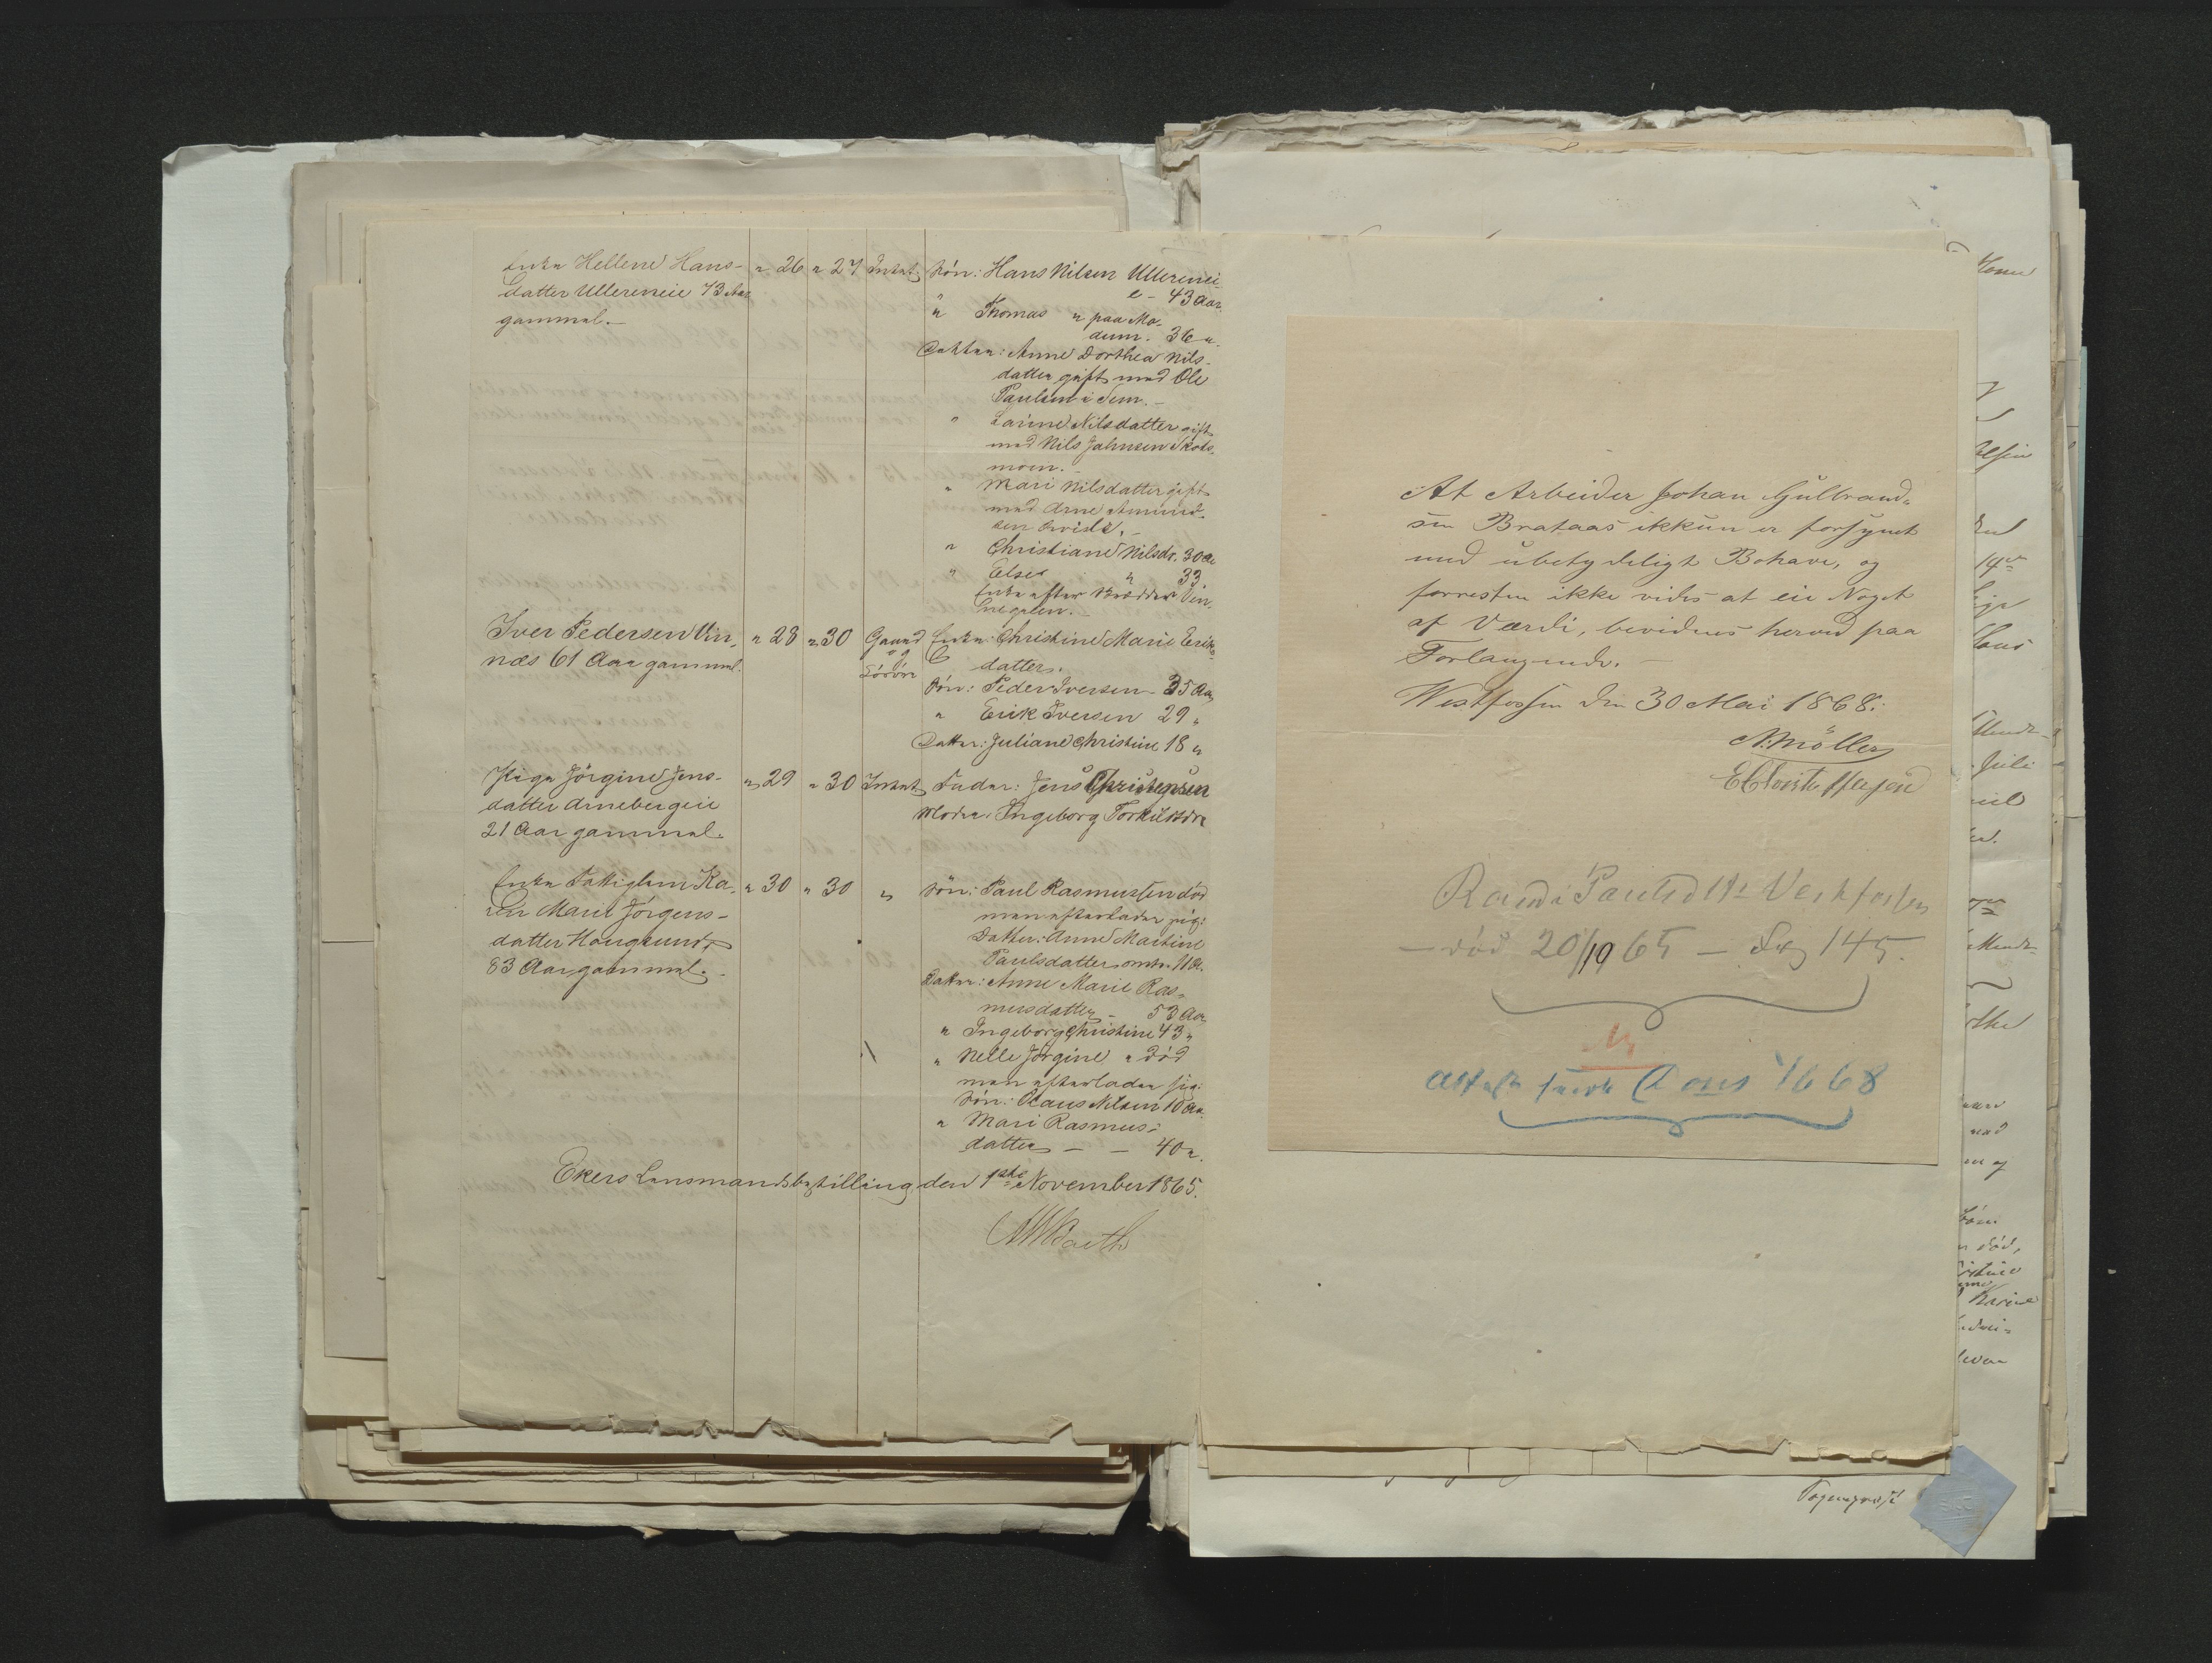 Enke Hellene Hans-
datter Ullereneie 73 Aar
gammel.-
" 26 " 27 Intet
Søn: Hans Nilsen Ullerenei-
e - 43 Aar
" Thomas " paa Mo-
dum. 36 "
Datter: Anne Dorthea Nils-
datter gift med Ole
Paulsen i Sem.-
" Karine Nilsdatter gift
med Nils Jahnsen Skots-
moen.-
" Mari Nilsdatter gift
med Arne Amund-
sen
" Christiane Nilsdr. 30 Aar
" Else " 33.
Enke efter
Iver Pedersen Vin-
næs 61 Aar gammel.
" 28 " 30 Gaard
og
Løsøre
Enke: Christine Marie Eriks-
datter.
Søn: Peder Iversen - 35 Aar
" Erik Iversen 29 "
Datter: Juliane Christine 18 "
Pige Jörgine Jens-
datter Arnebergeie
21 Aar gammel.
" 29 " 30 Intet
Fader: Jens Christensen
Moder: Ingeborg Torkildsdr
Enke Fattiglem Ka-
ren Marie Jörgens-
datter Hougsund
83 Aar gammel.-
" 30 " 30 "
Søn: Paul Rasmussen død
men efterlader sig:
Datter: Anne Martine
Paulsdatter omtr. 11 Ar.
Datter: Anne Marie Ras-
musdatter - 53 Aar
" Ingeborg Christine 43 "
" Nelle Jörgine " død
men efterlader sig:
Søn: Claus Nilsen 10 Aar
" Mari Rasmus-
datter - - 40 "
Ekers Lensmandsbestilling den 1ste November 1865.
At Arbeider Johan Gulbrand-
sen Brataas ikkun er forsynet
med ubetydeligt Bohave, og
forresten ikke vides at eie Noget
af Værdi, bevidnes herved paa
Forlangende.-
Westfossen den 30 Mai 1868.
N. Möller
E Christoffersen
Randi Paulsdtr Vestfossen
- død 20/10 65 - Lb 145.
1668